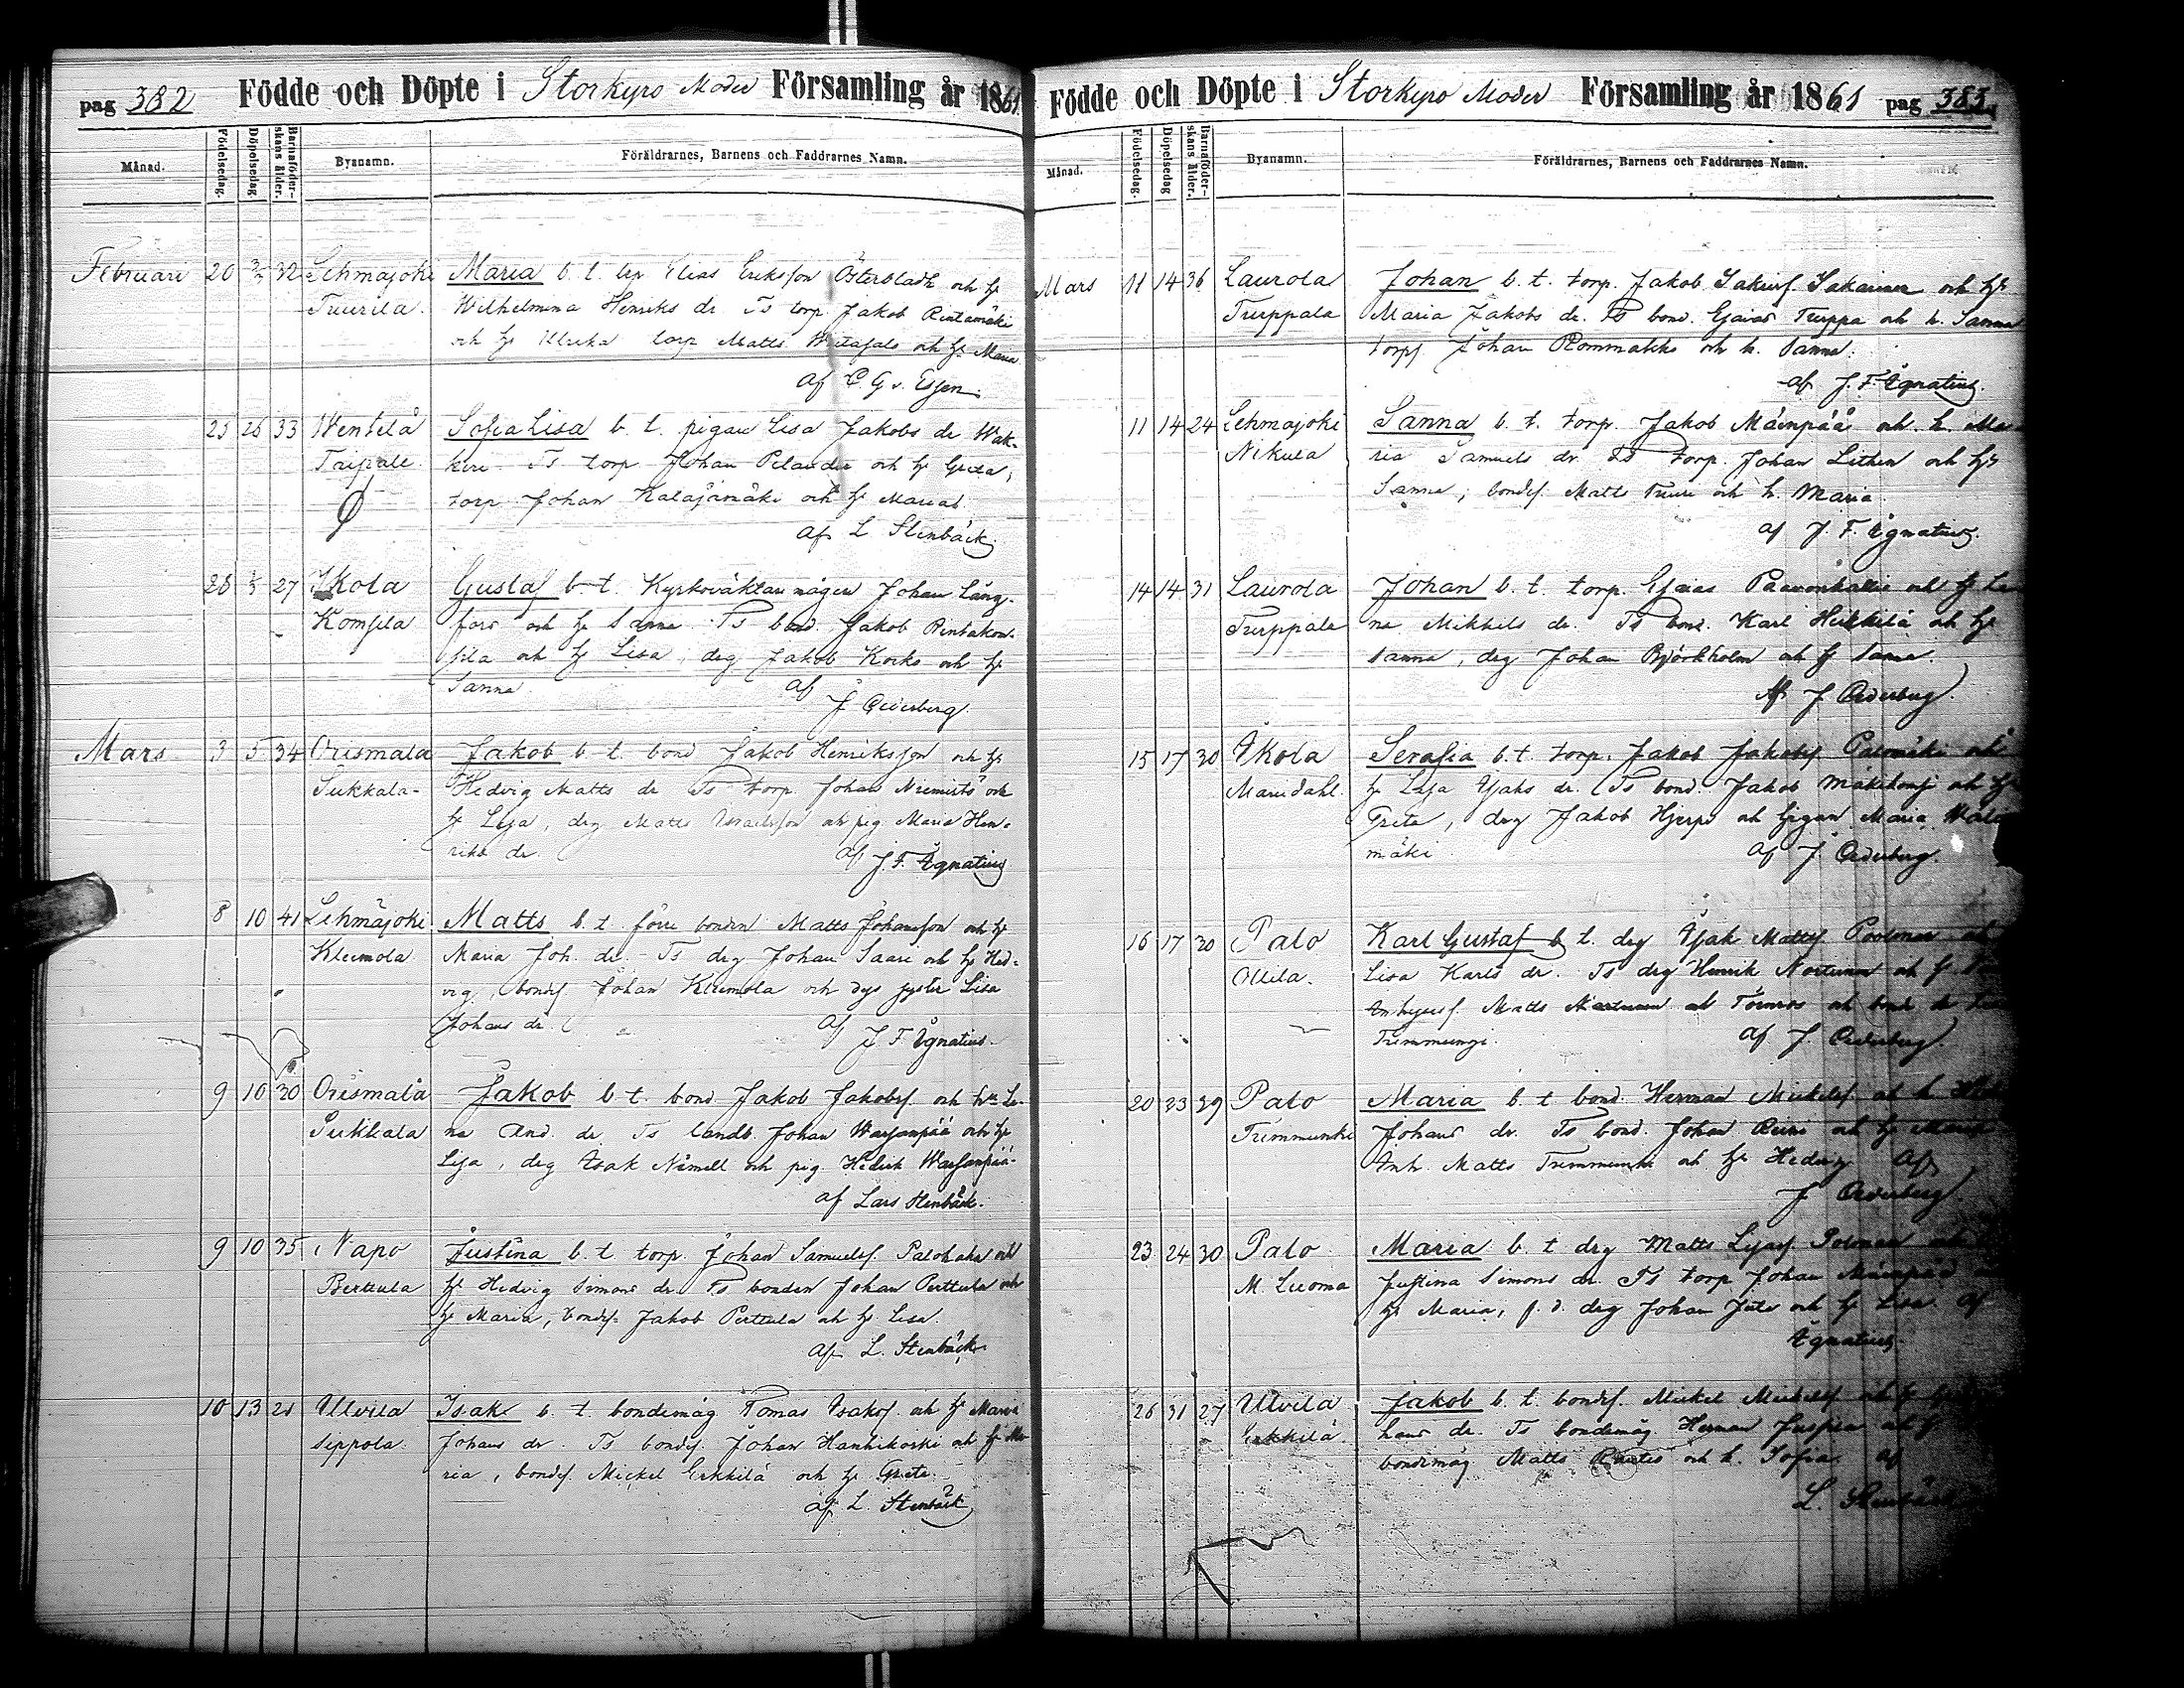 pag 382 Födde och Döpte i Storkyro Moder Församling år 1861
Månad. Födelsedag. Döpelsedag Barnaföderskans ålder. Byanamn. Föräldrarnes, Barnens och Faddrarnes Namn.
Februari 20 32 Lehmäjoki Maria b. t. Elias Eriksson Österbladh och h.
Tuurila. Wilhelmina Henriks dr Ts torp. Jakob Rintamäki
och h. Ulrika torp Matts och h. Maria
af C. G. v. Essen.
25 26 33 Wentelä Sofia Lisa b. t. pigan Lisa Jakobs dr Wak-
Taipale keri Ts torp Johan Pelander och h. Greta,
torp Johan Kalajämäki och h. Maria
af L Stenbäck
28 27 Ikola Gustaf b. t. Kyrkoväktaremågen Johan Lång-
Kompila fors och h. Sanna Ts bond. Jakob Rintakom-
pila och h. Lisa, drg Jakob Korks och h.
Sanna af
J Cederberg.
Mars 3 5 34 Orismala Jakob b. t. bond Jakob Henriksson och h.
Sukkala- Hedvig Matts dr Ts torp. Johan Niemistö och
h. Lisa, drg Matts Israelsson och pig. Maria Hen-
riks dr. af J. F. Ignatius
8 10 41 Lehmäjoki Matts b. t. förre bonden Matts Johansson och h.
Kleimola Maria Joh. dr. Ts drg Johan Saari och h. Hed-
vig, bonds. Johan Kleimola och dess syster Lisa
Johans dr. af
J F Ignatius.
9 10 30 Orismala Jakob b. t. bond Jakob Jakobss. och h. Le-
Sukkala na And. dr. Ts landb. Johan Warsanpää och h.
Lisa, drg Isak Nämell och pig. Hedvik Warsanpää.
af Lars Stenbäck.
9 10 35 Napo Justina b. t torp. Johan Samuelss. Palohaka och
Berttula h. Hedvig Simons dr Ts bonden Johan Perttula och
h. Maria, bonds. Jakob Perttula och h. Lisa.
af L. Stenbäck
10 13 21 Ullvila Isak b. t. bondemåg Tomas Isakss. och h. Maria
Seppola. Johans dr. Ts bonds. Johan Hanhikoski och h. Ma-
ria, bonds. Mickel Erkkilä och h. Greta.
af L. Stenbäck
Födde och Döpte i Storkyro Moder Församling år 1861 pag 383.
Månad. Födelsedag. Döpelsedag Barnaföderskans ålder. Byanamn. Föräldrarnes, Barnens och Faddrarnes Namn.
Mars 11 14 36 Laurola Johan b. t. torp. Jakob Sakariss. Sakarinen och h.
Turppala Maria Jakobs dr. Ts bond. Esaias Turppa och h. Sanna
torps. Johan Rommakko och h. Sanna.
af J. F. Ignatius.
11 14 24 Lehmajoki Sanna b. t. torp. Jakob Mäenpää och h. Ma-
Nikula ria Samuels dr. Ts torp. Johan Lithen och h.
Sanna; bonds. Matts Tuuri och h. Maria.
af J. F. Ignatius.
14 14 31 Laurola Johan b. t. torp. Esaias Paavonkallio och h. Le-
Turppala na Mikkels dr. Ts bond. Karl Heikkilä och h.
Sanna, drg Johan Björkholm och h. Sanna.
Af J Cederberg
15 17 30 Ikola Serafia b. t. torp. Jakob Jakobss. Palomäki och
Mariedahl. h. Lisa Isaks dr. Ts bond. Jakob och h.
Greta, drg Jakob Hjerpe och pigan Maria
mäki af J. Cederberg.
16 17 30 Palo Karl Gustaf b. t. drg Isak Mattss. och
Ollila. Lisa Karls dr. Ts drg Henrik och h.
Matts och och bond. dr
af J. Cederberg
20 23 29 Palo Maria b. t bond. Herman Mickelss. och h.
Johans dr. Ts bond. Johan och h. Maria
Matts och h. Hedvig Af
J Cederberg.
23 24 30 Palo Maria b. t drg Matts
M. Luoma Justina Simons dr. Ts torp. Johan Mäenpää
h. Maria, f. d. drg Johan och h. Lisa. af
Ignatius.
26 31 27 Ulvila Jakob b. t. bonds. Mickel Mickelss. och h.
Erkkilä. hans dr. Ts bondemåg Herman och h.
bondemåg Matts och h. Sofia. af
L. Stenbäck